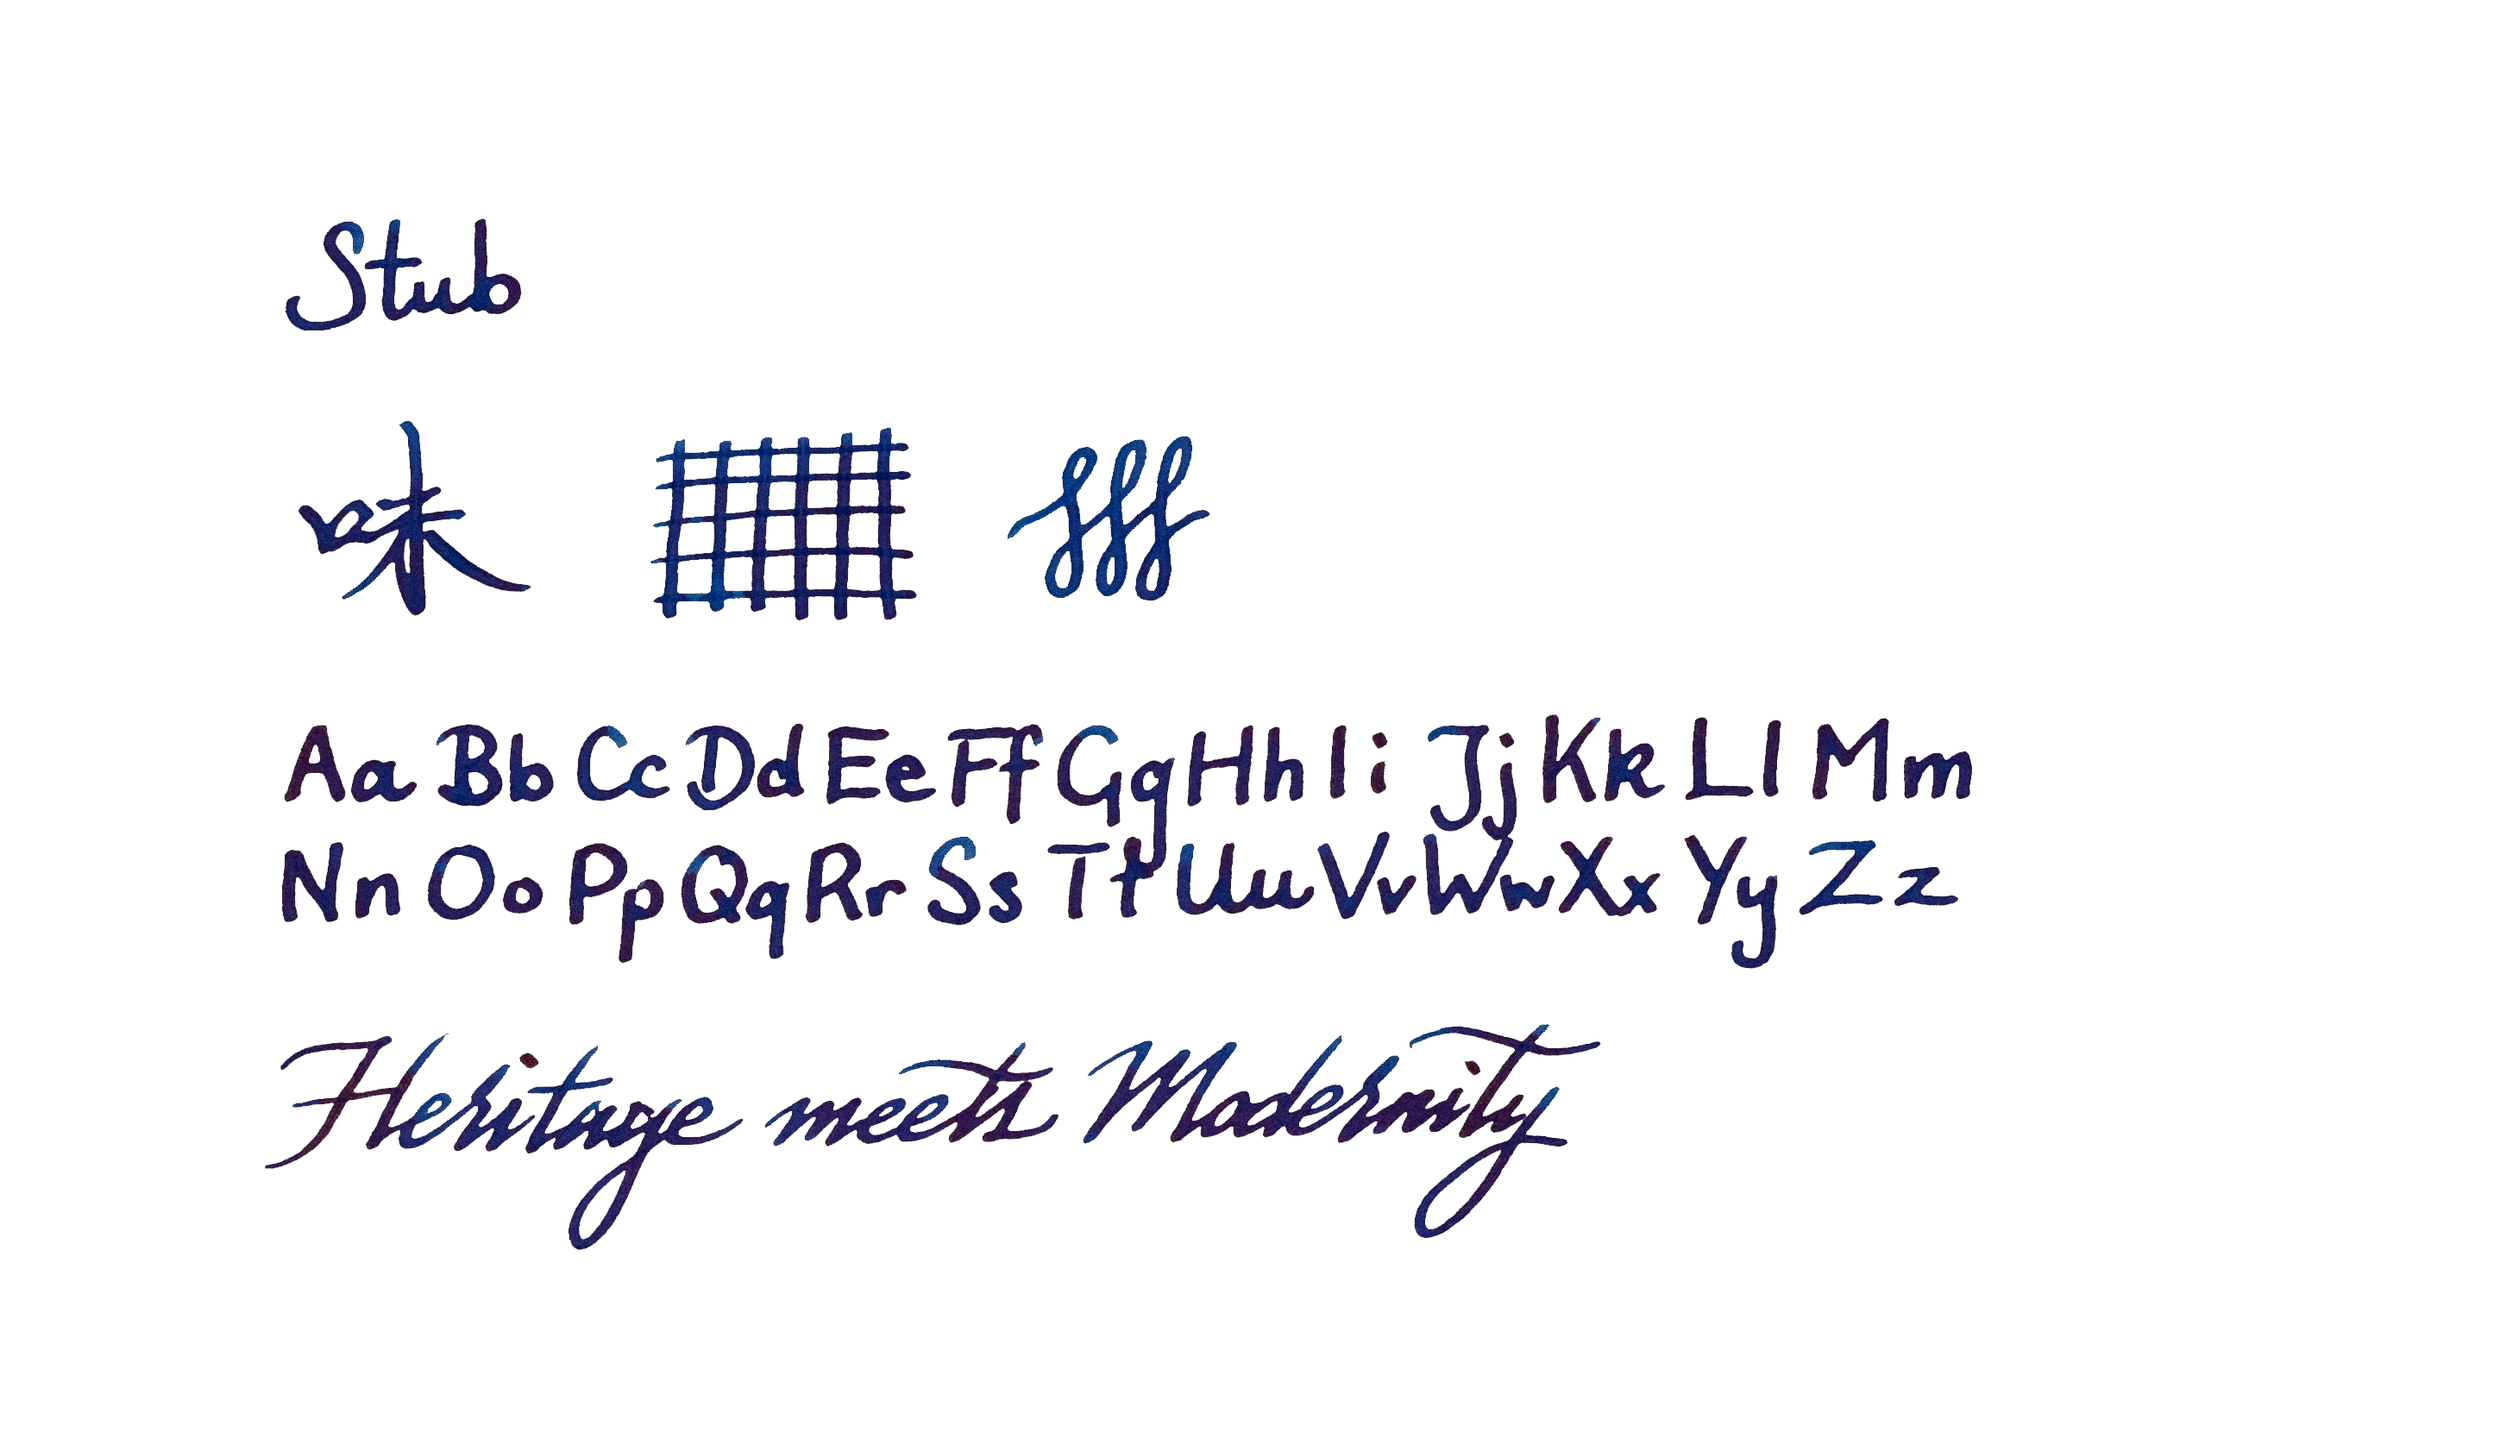 Stub
味 fff
Aa Bb Cc Dd Ee Ff Gg Hh Ii Jj Kk Ll Mm
Nn Oo Pp Qq Rr Ss Tt Uu Vv Ww Xx Yy Zz
Heritage meets Modernity